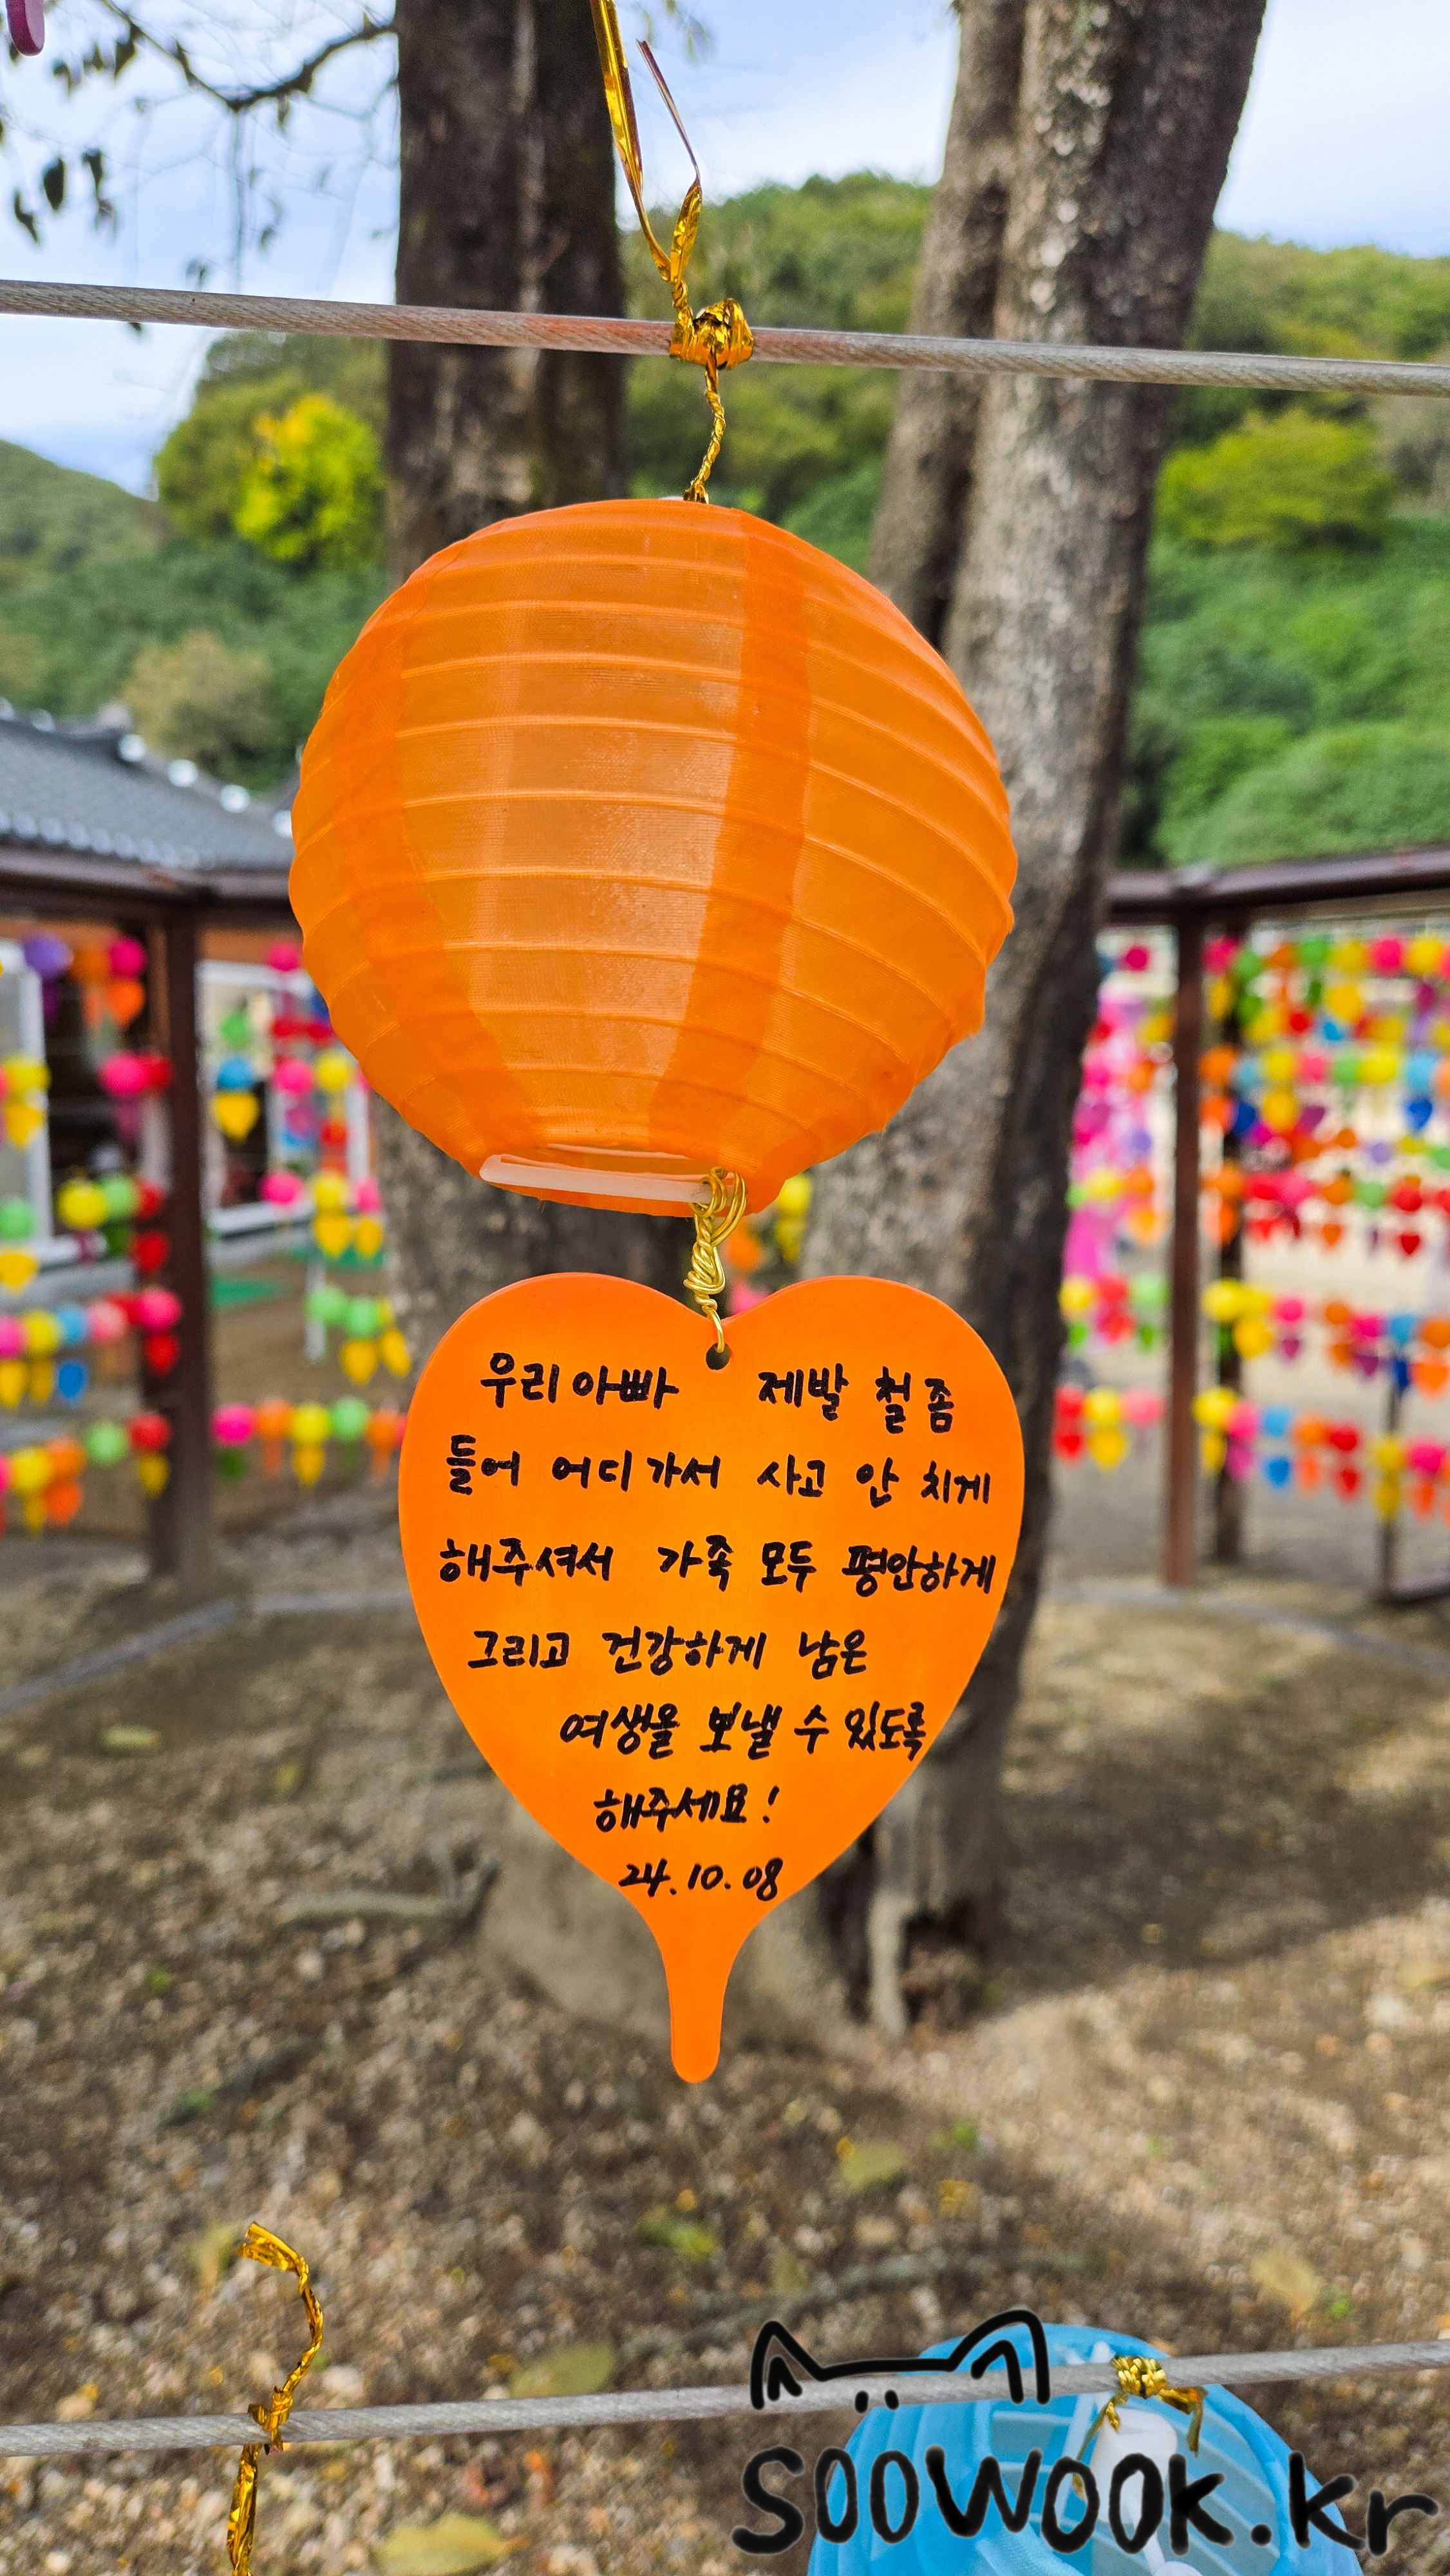 우리아빠 제발 철 좀
들어 어디가서 사고 안 치게
해주셔서 가족 모두 평안하게
그리고 건강하게 남은
여생을 보낼 수 있도록
해주세요!
24.10.08
soowook.kr